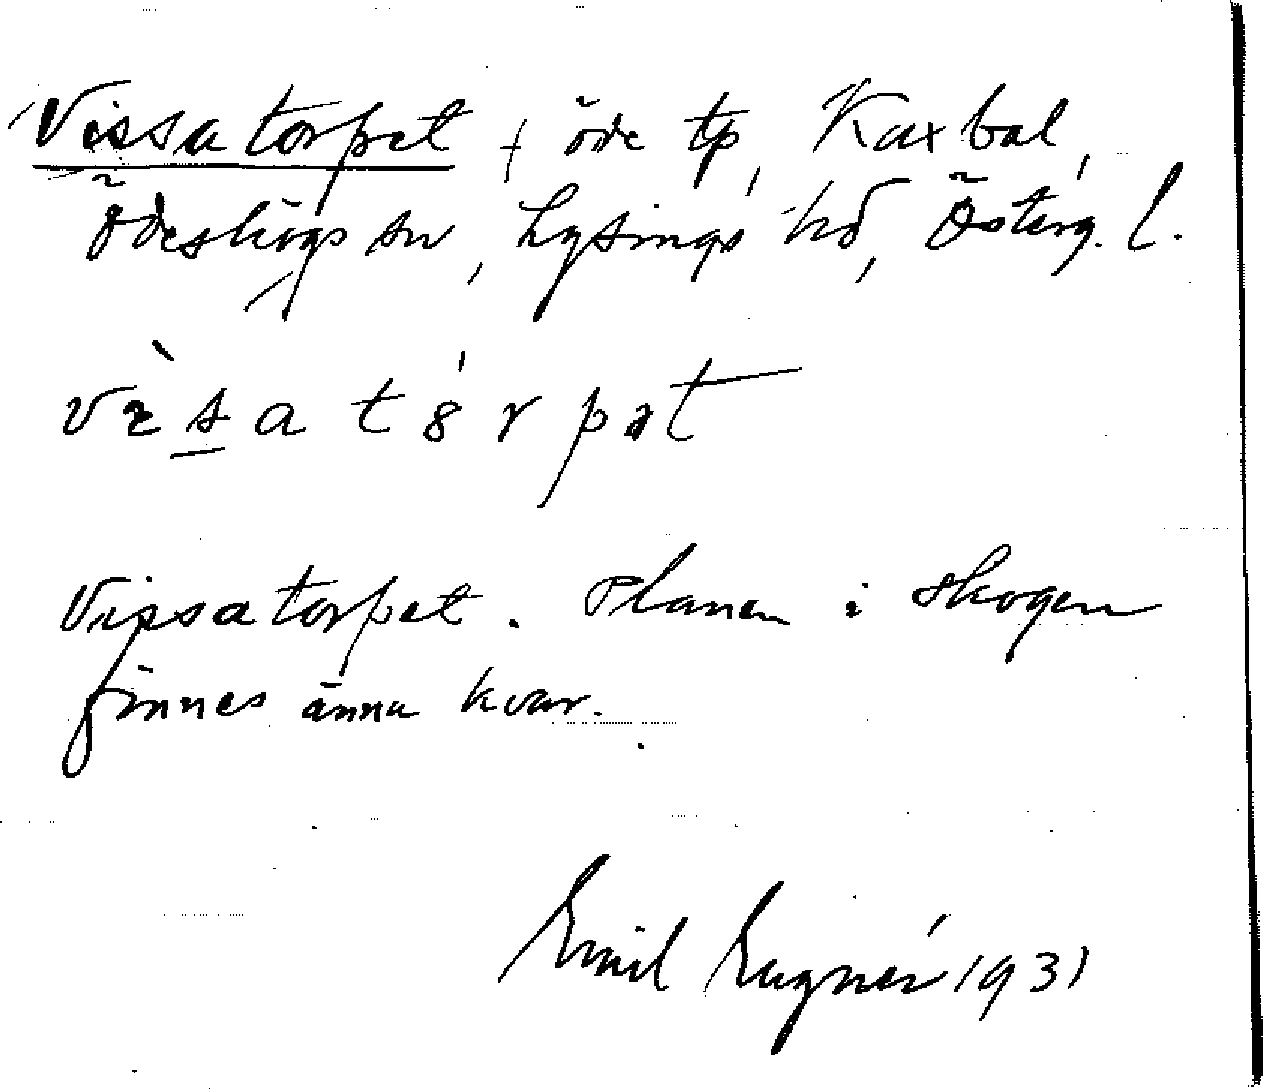 Vissatorpet † öde tp, Kaxbal,
Ödeshögs sn, Lysings hd, Österg. l.
vìsatórpət
Vissatorpet. Planen i skogen
finnes änna kvar.
Emil Lugnér 1931